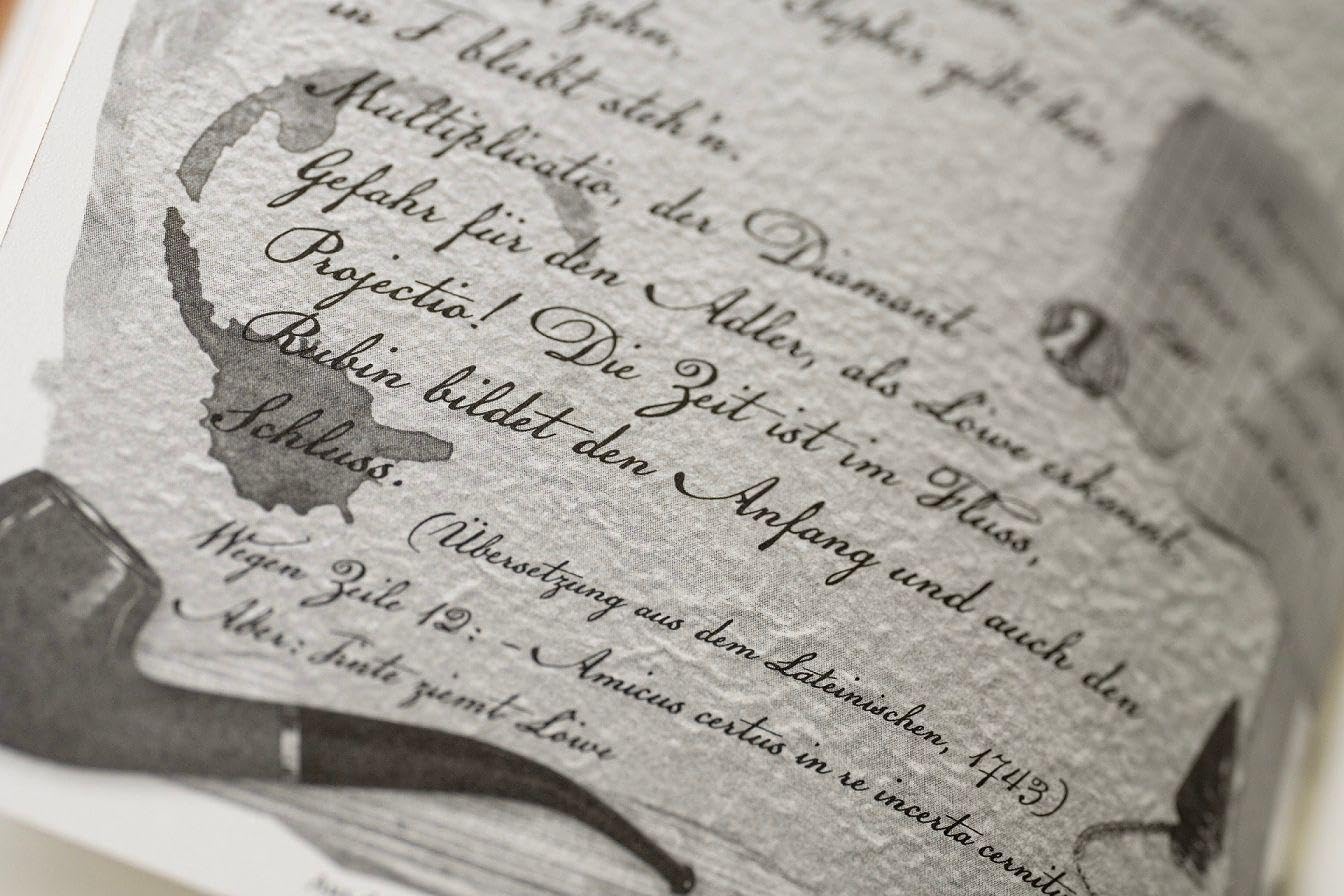 zehn,
Saphir geht hin,
in F bleibt steh'n.
Multiplicatio, der Diamant
Gefahr für den Adler, als Löwe erkannt.
Projectio! Die Zeit ist im Fluss,
Rubin bildet den Anfang und auch den
Schluss.
(Übersetzung aus dem Lateinischen, 1743)
Wegen Zeile 12: - Amicus certus in re incerta cernitu
Aber: Tinte ziemt Löwe